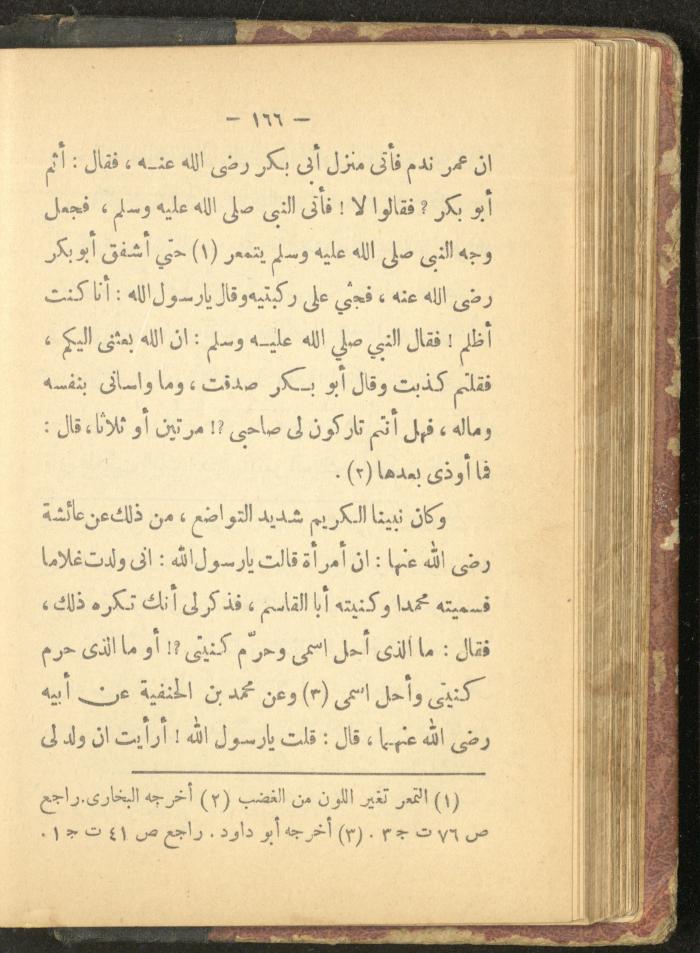 — ١٦٦ —
ان عمر ندم فأتى منزل أبى بكر رضى الله عنه ، فقال : أثم
أبو بكر ? فقالوا لا ! فأتى النبى صلى الله عليه وسلم ، فجعل
وجه النبى صلى الله عليه وسلم يتمعر (١) حتي أشفق أبو بكر
رضى الله عنه ، فجثي على ركبتيه وقال يارسول الله : أنا كنت
أظلم ! فقال النبي صلي الله عليه وسلم : ان الله بعثنى اليكم ،
فقلتم كذبت وقال أبو بكر صدقت ، وما واسانى بنفسه
وماله ، فهل أنتم تاركون لى صاحبى ?! مرتين أو ثلاثا ، قال :
فما أوذى بعدها (٢) .
وكان نبينا الكريم شديد التواضع ، من ذلك عن عائشة
رضى الله عنها : ان أمرأة قالت يارسول الله : انى ولدت غلاما
فسميته محمدا وكنيته أبا القاسم ، فذكر لى أنك تكره ذلك ،
فقال : ما الذى أحل اسمى وحرّم كنيتى ?! أو ما الذى حرم
كنيتى وأحل اسمى (٣) وعن محمد بن الحنفية عن أبيه
رضى الله عنهما ، قال : قلت يارسول الله ! أرأيت ان ولد لى
(١) التمعر تغير اللون من الغضب (٢) أخرجه البخارى . راجع
ص ٧٦ ت ج ٣ . (٣) أخرجه أبو داود . راجع ص ٤١ ت ج ١ .